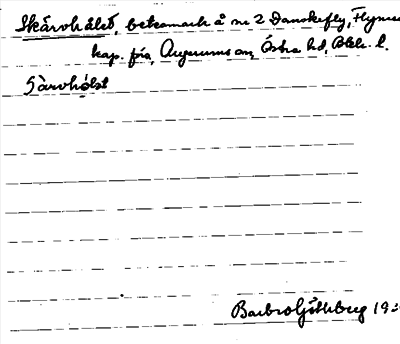 Skärvhålet, betesmark å nr 2 Danskefly, Flymen
kap. fra, Augerums sn, Östra hd, Blek. l.
Barbro Götheberg 193